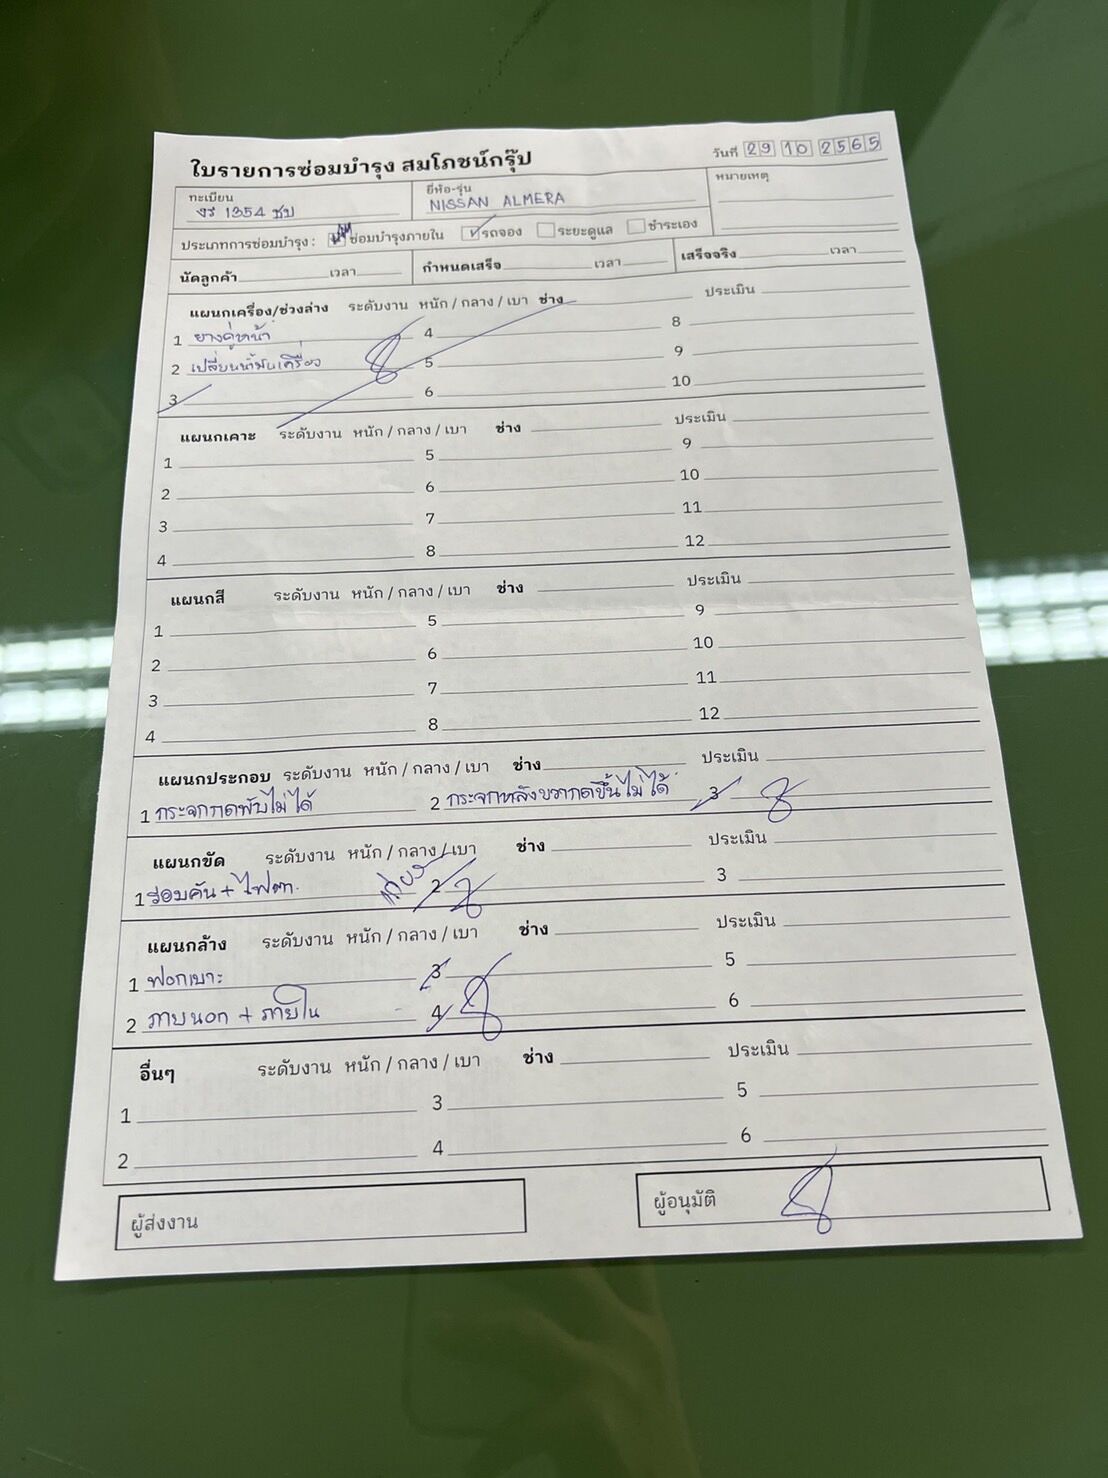 ใบรายการซ่อมบำรุง สมโภชน์กรุ๊ป
วันที่ 29 10 2565
ทะเบียน ยี่ห้อ-รุ่น หมายเหตุ
1354 ชบ NISSAN ALMERA
ประเภทการซ่อมบำรุง : ซ่อมบำรุงภายใน รถจอง ระยะดูแล ชำระเอง
นัดลูกค้า เวลา กำหนดเสร็จ เวลา เสร็จจริง เวลา
แผนกเครื่อง/ช่วงล่าง ระดับงาน หนัก / กลาง / เบา ช่าง ประเมิน
1 ยางคู่หน้า 4 8
2 เปลี่ยนน้ำมันเครื่อง 5 9
3 6 10
แผนกเคาะ ระดับงาน หนัก / กลาง / เบา ช่าง ประเมิน
1 5 9
2 6 10
3 7 11
4 8 12
แผนกสี ระดับงาน หนัก / กลาง / เบา ช่าง ประเมิน
1 5 9
2 6 10
3 7 11
4 8 12
แผนกประกอบ ระดับงาน หนัก / กลาง / เบา ช่าง ประเมิน
1 กระจกกดพับไม่ได้ 2 กระจกหลังขวากดขึ้นไม่ได้ 3
แผนกขัด ระดับงาน หนัก / กลาง / เบา ช่าง ประเมิน
1 รอบคัน + ไฟตา 2 3
แผนกล้าง ระดับงาน หนัก / กลาง / เบา ช่าง ประเมิน
1 ฟอกเบาะ 3 5
2 ภายนอก + ภายใน 4 6
อื่นๆ ระดับงาน หนัก / กลาง / เบา ช่าง ประเมิน
1 3 5
2 4 6
ผู้ส่งงาน ผู้อนุมัติ